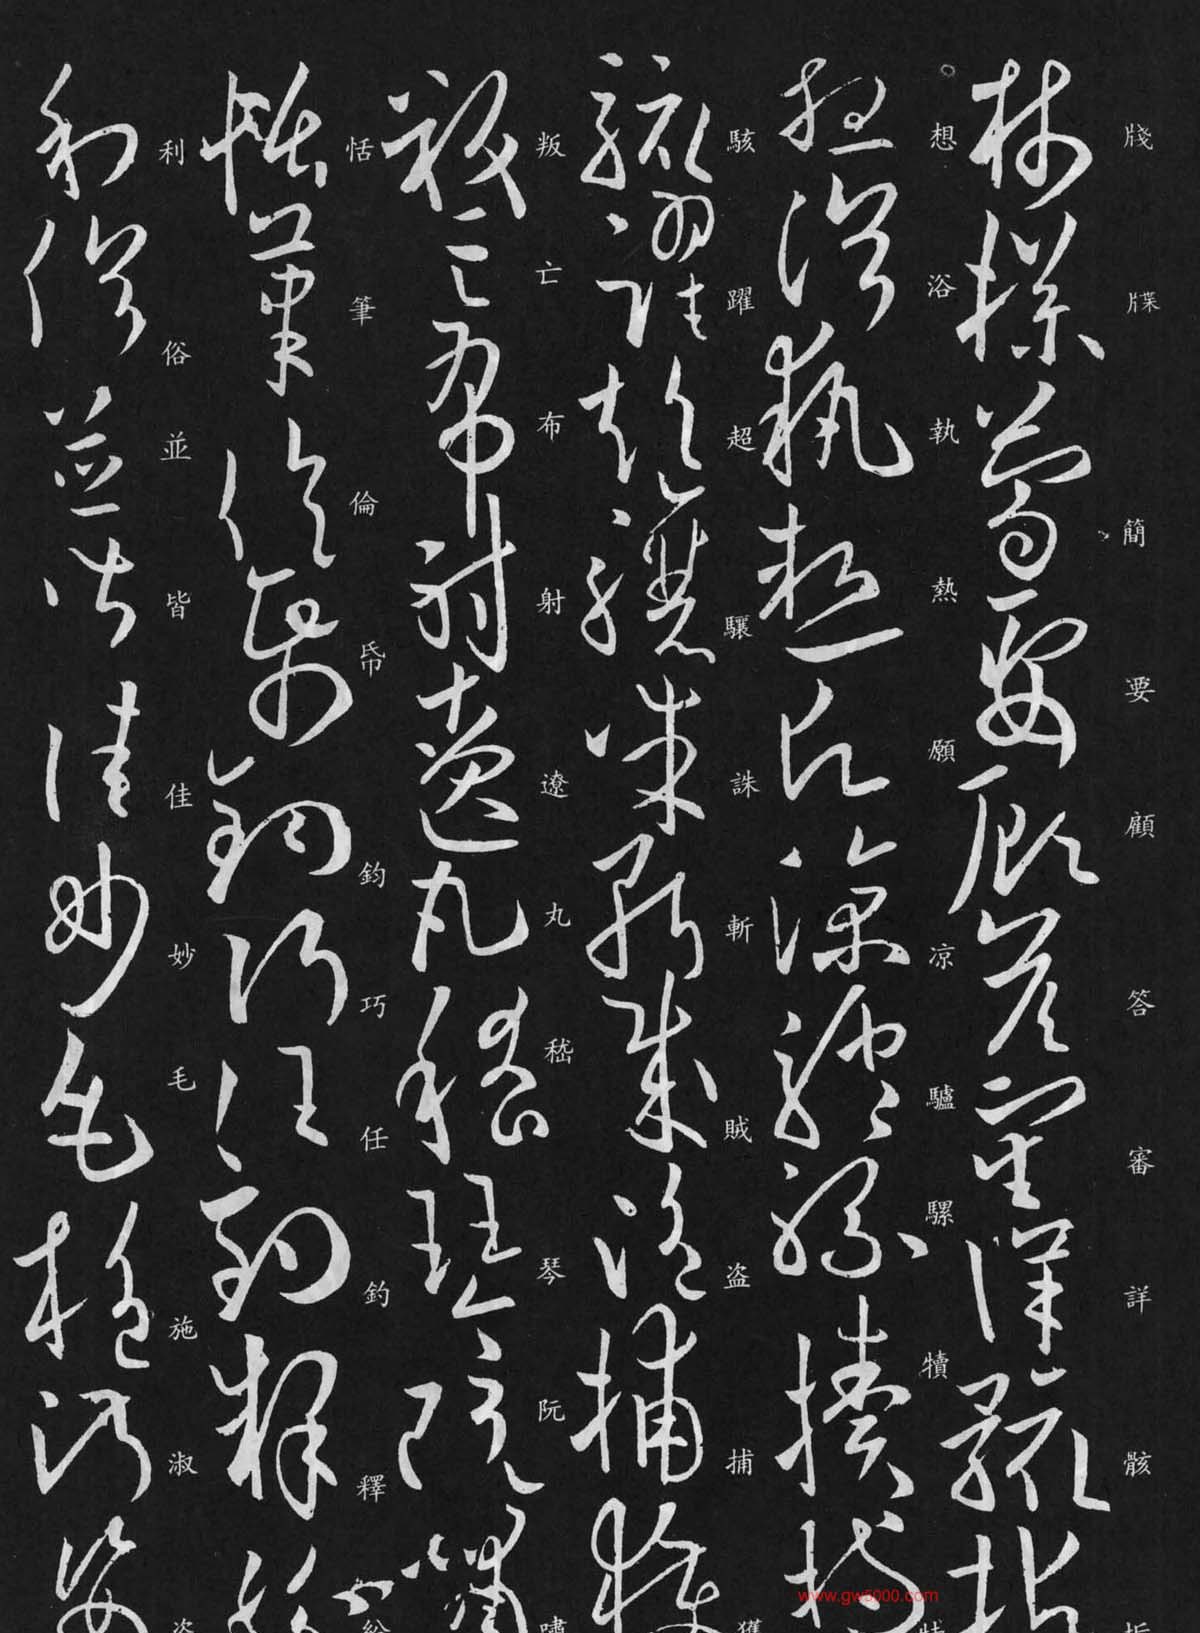 牋牒簡要顧答審詳骸垢
想浴執熱願凉驢騾犢特
駭躍超驤誅斬賊盜捕獲
叛亡布射遼丸嵇琴阮嘯
恬筆倫帋鈞巧任釣釋紛
利俗並皆佳妙毛施淑姿
www.gw5000.com